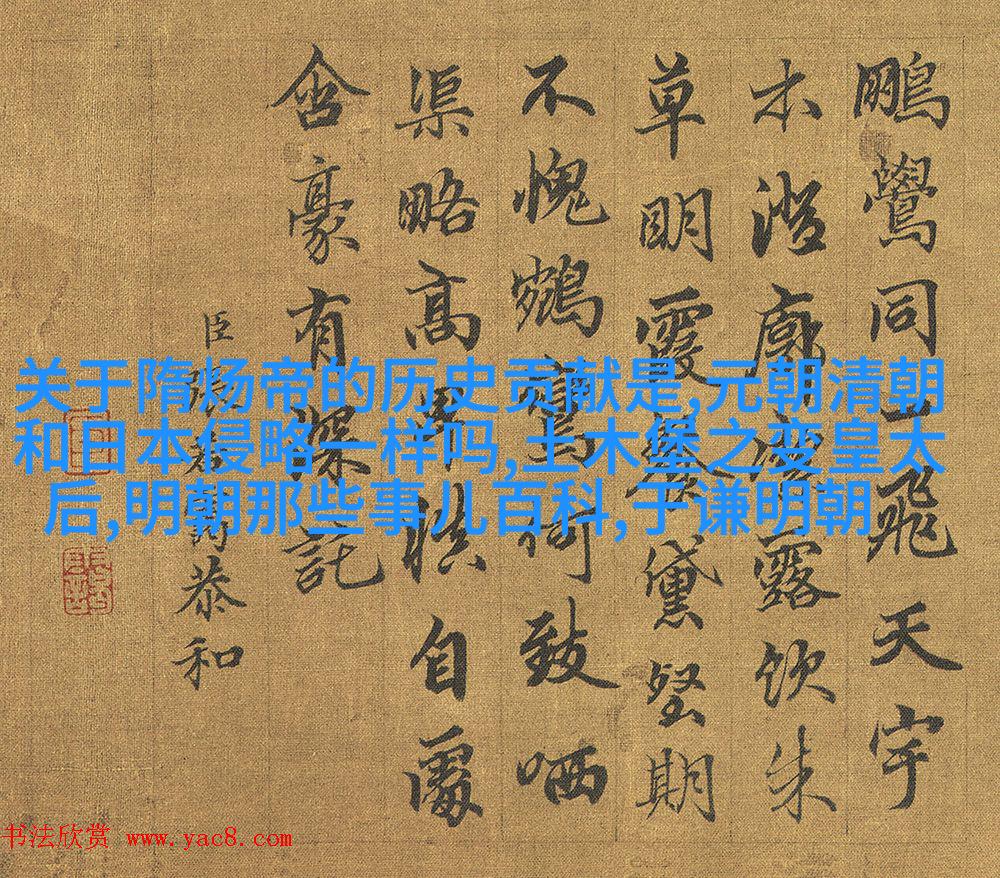 鵬鷽同一飛天宇
木澄廓露饮朱
草明霞黛堅期
不愧鵷鸞致哂
渠略高自
含豪有深託
臣恭和
关于隋炀帝的历史贡献是,元朝清朝
和日本侵略一样吗,土木堡之变皇太
后,明朝那些事儿百科,于谦明朝
书法欣赏 www.yac8.com